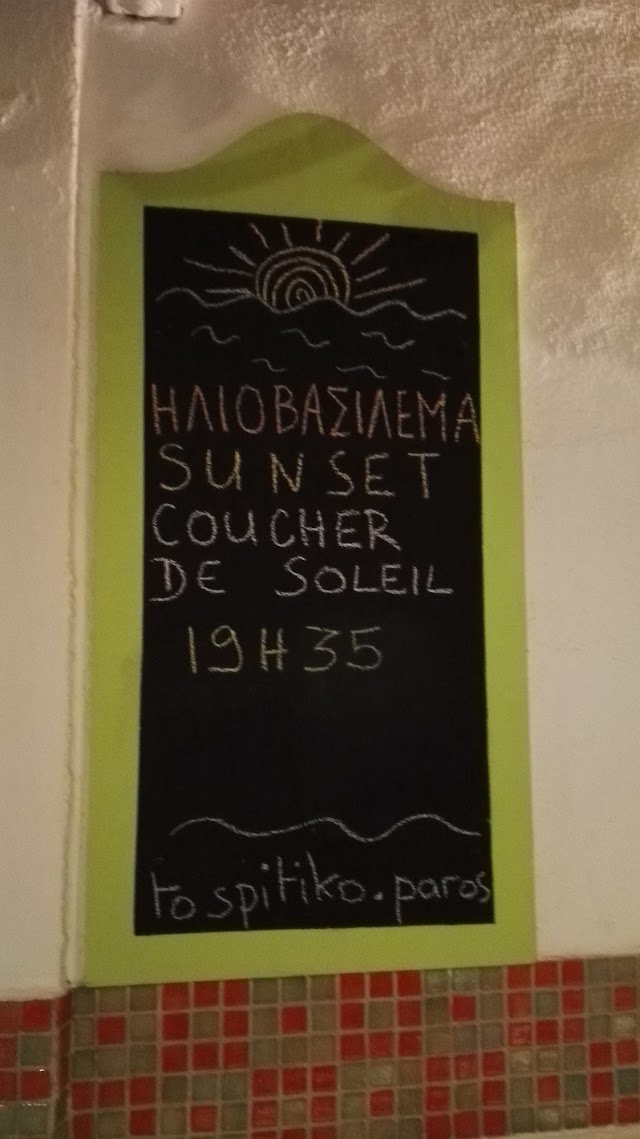 ΗΛΙΟΒΑΣΙΛΕΜΑ
SUNSET
COUCHER
DE SOLEIL
19H35
to spitiko.paros